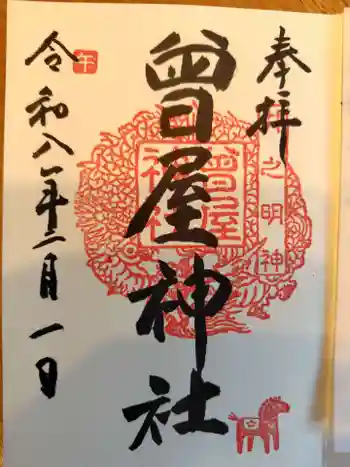 奉拝
曽屋神社
令和八年二月一日
午
曽屋
神社
之明神